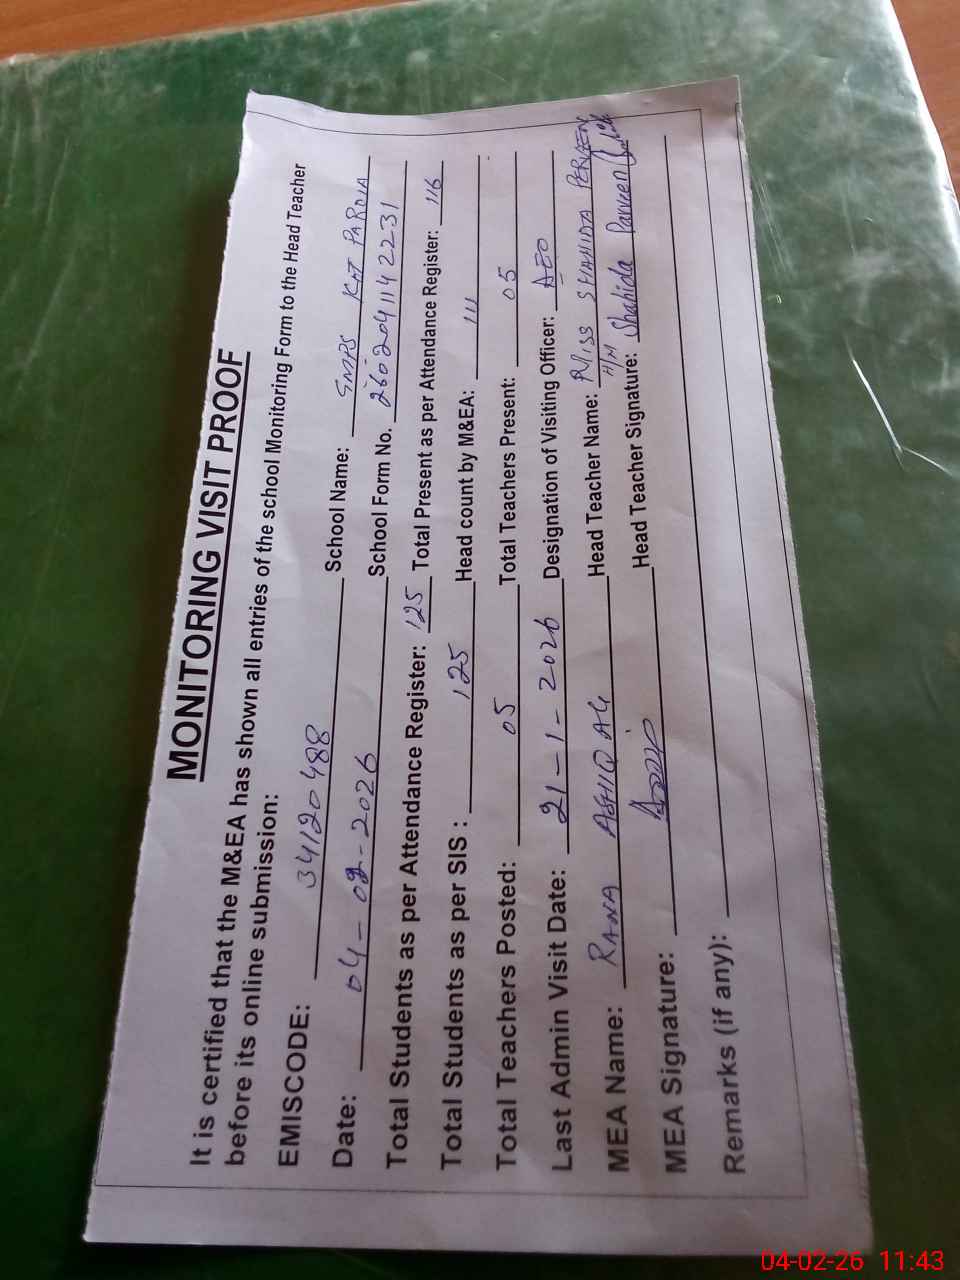 MONITORING VISIT PROOF
It is certified that the M&EA has shown all entries of the school Monitoring Form to the Head Teacher
before its online submission:
EMISCODE: 34120488 School Name: GMPS KOT PAROIA
Date: 04-02-2026 School Form No. 2602041142231
Total Students as per Attendance Register: 125 Total Present as per Attendance Register: 116
Total Students as per SIS : 125 Head count by M&EA: 111
Total Teachers Posted: 05 Total Teachers Present: 05
Last Admin Visit Date: 21-1-2026 Designation of Visiting Officer: AEO
MEA Name: RANA ASHIQ ALI Head Teacher Name: MISS SHAHIDA PERVEEN
H/M
MEA Signature: Head Teacher Signature: Shahida Parveen
Remarks (if any):
04-02-26 11:43